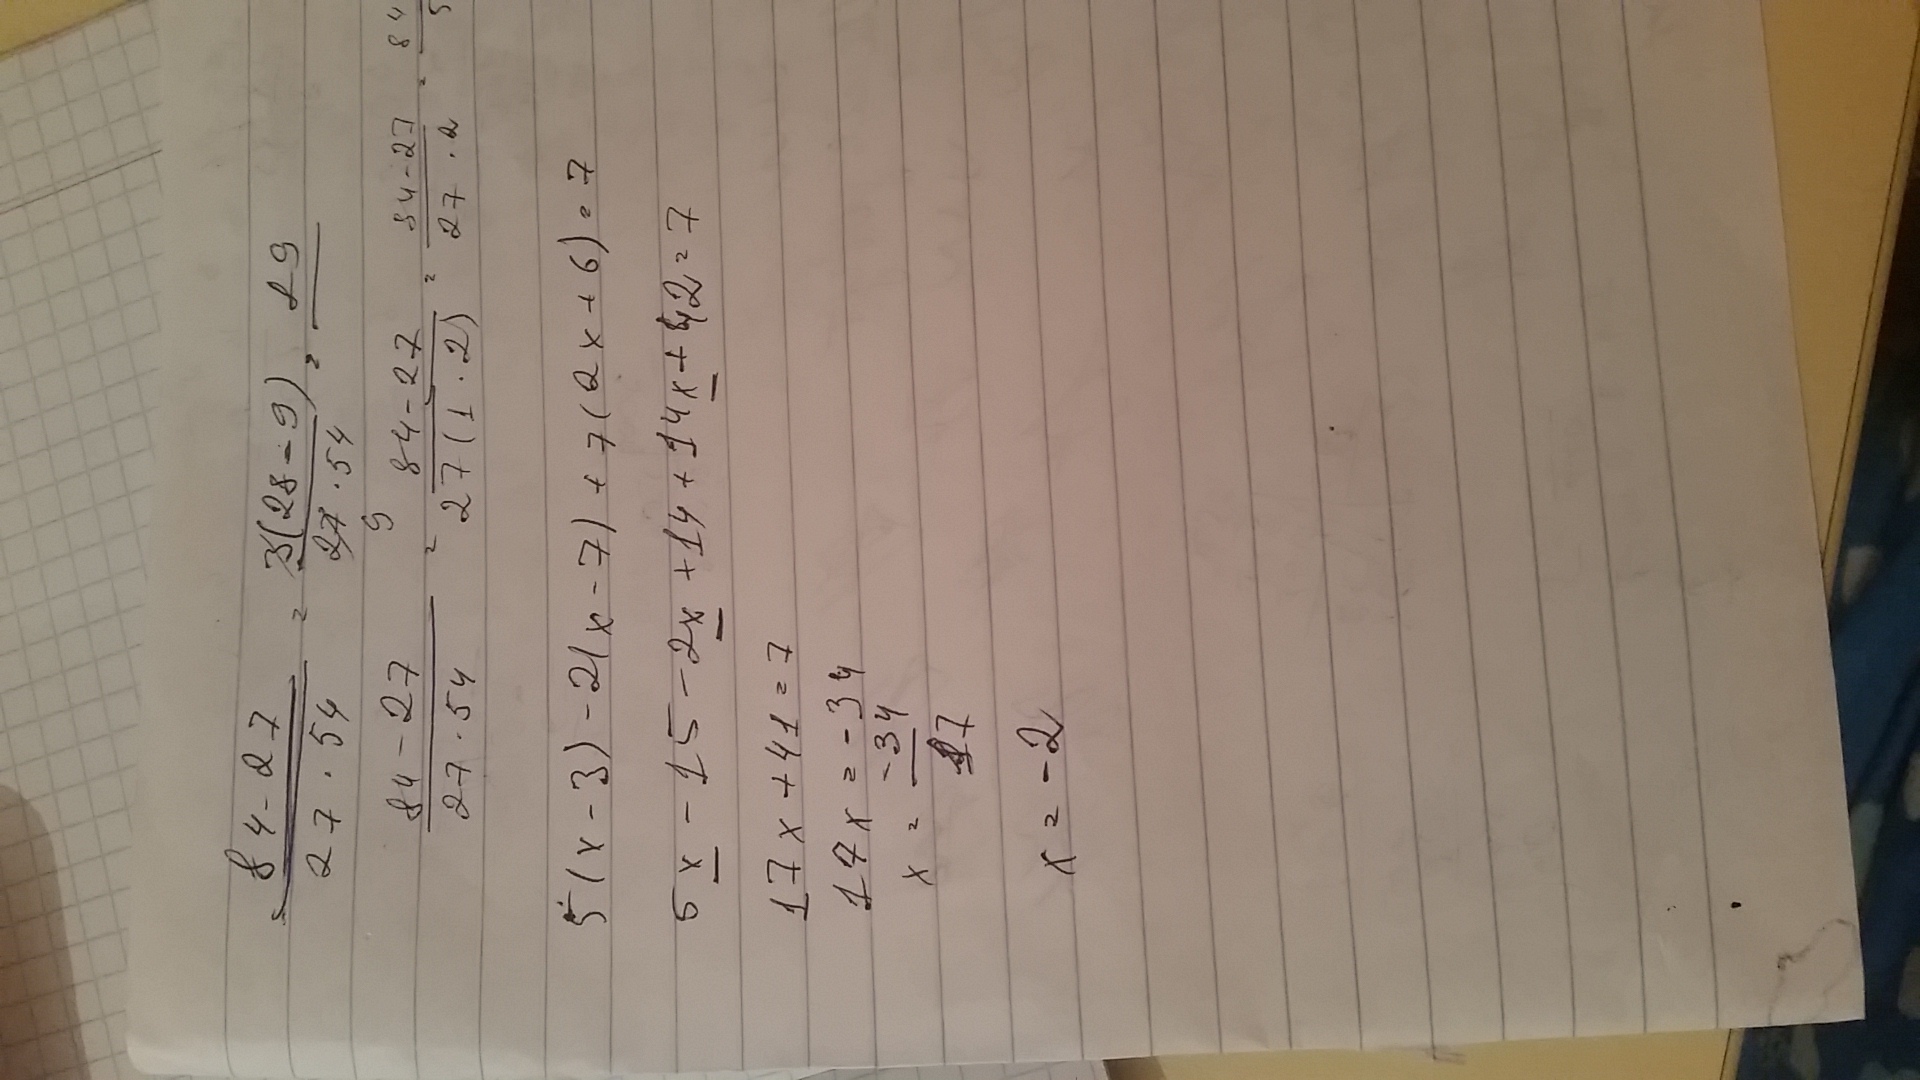 = 84-27 / 27·54 = 3(28-9) / 27·54 = 19
9
84-27 / 27·54 = 84-27 / 27(1·2) = 54-27 / 27·2 = 84
5(x-3)-2(x-7)+7(2x+6)=7
5x-15-2x+14+14x+42=7
17x+41=7
17x=-34
x = -34 / 17
x=-2